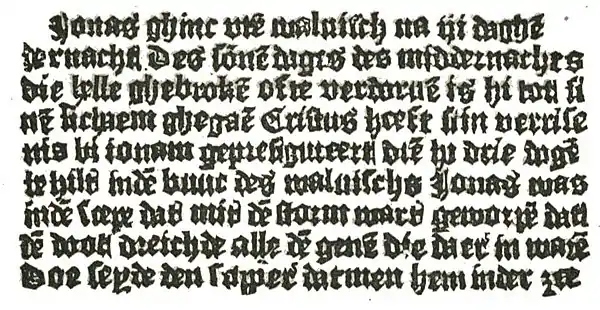 Jonas ghinc vte walvisch na iij daghē
dernacht Des sōnēdages des middernachts
die helle ghebrokē ofte verdoruē is hi tott si
nē lichaem ghegaē Cristus heeft sijn verrise
nis bi ionam geprefigureert diē hi drie dagē
te hilt indē buuc des waluischs Jonas was
indē scepe dat mit dē storm wart geworpē datt
dē doot dreichde alle dē genē die daer in warē
Doe seyde den scipper datmen hem inder zee